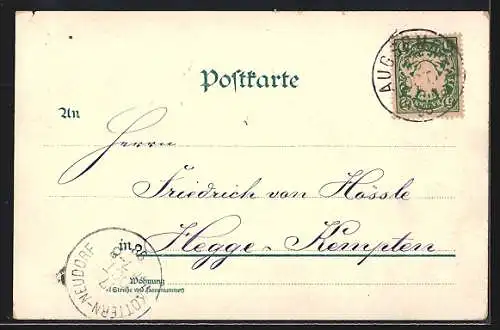 AUGSBURG
Postkarte
An
Herrn
Friedrich von Hössle
in
Hegge-Kempten
Wohnung
(Straße und Hausnummer)
KOTTERN-NEUDORF